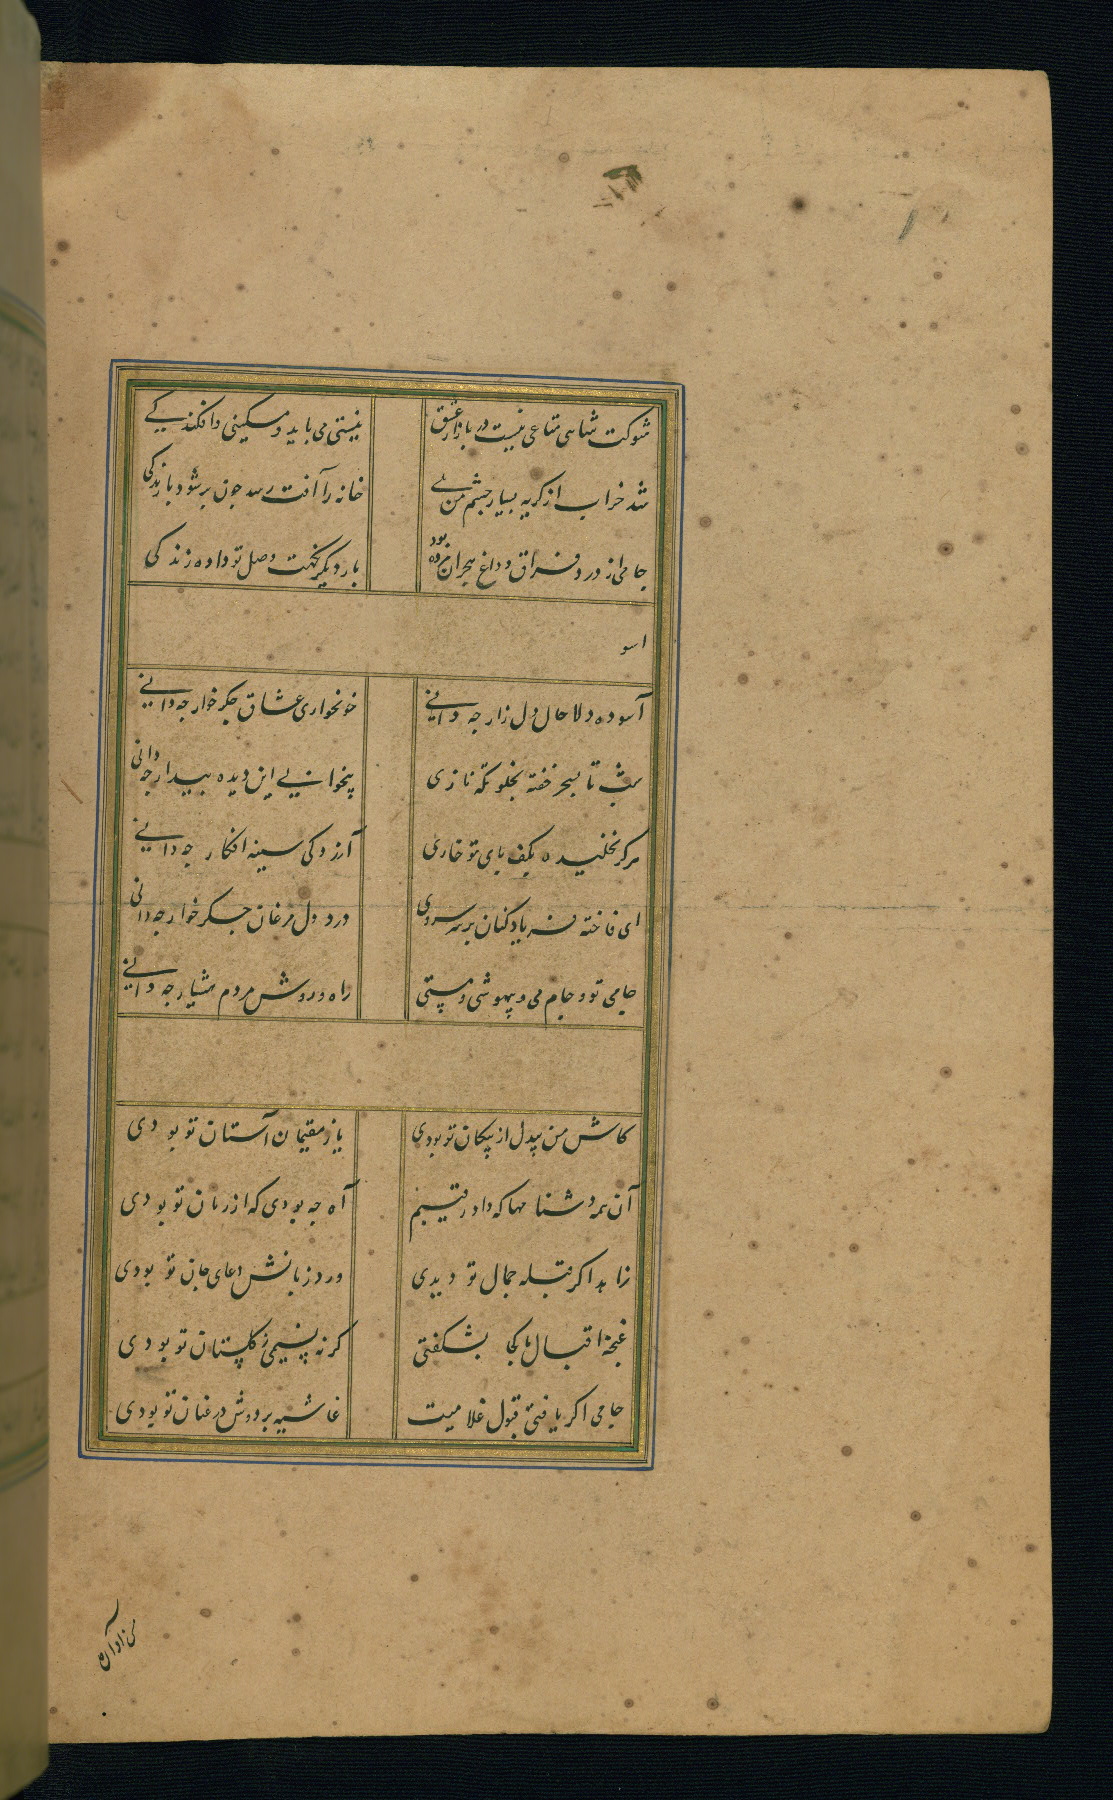 شوکت شاهی متاعی نیست در بازار عشق نیستی می باید و مسکینی و افکندکی
شد خراب از کریه بسیار چشم من بے خانه را آفت رسد جون بر شود بارندکی
جامی از درد فراق و داغ هجران مرده بود بار دیکر نکهت وصل تو داده زندکی
آسوده دلا حال دل زار جه دانی خونخواری عشاق جکر خوار جه دانی
شب تا بسحر خفته بخلوتکه نازی بیخوابی این دیده بیدار جه دانی
هرکز نخلیده بکف پای تو خاری آزردکی سینه افکار جه دانی
ای فاخته فریاد کنان بر سر سروی درد دل مرغان جکر خوار جه دانی
جامی تو و جام می و بیهوشی و مستی راه و روش مردم هشیار جه دانی
کاش من بیدل از سکان تو بودی یا ز مقیمان آستان تو بودی
آن همه دشنامها که داد رقیبم آه جه بودی که از زبان تو بودی
زاهد اکر قبله جمال تو دیدی ورد زبانش دعای جان تو بودی
غنجه اقبال ما کجا بشکفتی کرنه نسیمی ز کلستان تو بودی
جامی اکر یافتی قبول غلامیت غاشیه بر دوش در عنان تو بودی